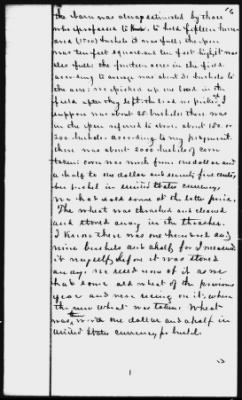 16
the barn was always estimated by those
who professed to know. to hold fifteen hun
and (1500) bushels it was full; the open
was ten feet square and ten feet high it was
also full; the fourteen acres in the field
according to average was about 30 bushels to
the acre: we picked up one load in the
field after they left. the load we picked I
suppose was about 25 bushels there was
in the open referred to above about 150 or
200 bushels according to my judgement.
there was about 2000 bushels of corn
taken: corn was worth from one dollar and
a half to one dollar and seventy five cents
per bushel in united states currency
we had sold some at the latter price.
The wheat was thrashed and cleaned
and stored away in the
I know there was one hundred and
nine bushels and a half for I measured
it myself, before it was stored
away. we used none of it as we
had some old wheat of the previous
year and were using on it, when
the new wheat was taken. Wheat
was, worth one dollar and a half in
united States currency per bushel.